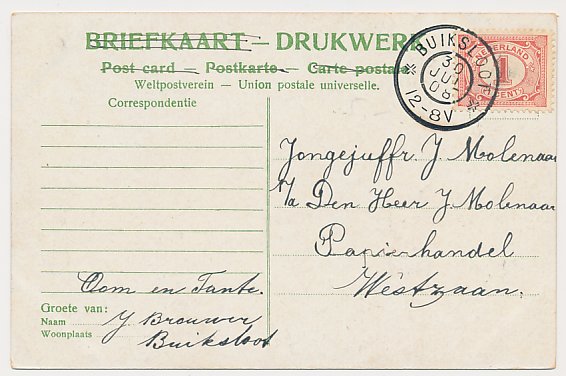 BRIEFKAART — DRUKWERK
Post card — Postkarte — Carte postale
Weltpostverein — Union postale universelle.
Correspondentie
BUIKSLOOT
30 JUL 08
12-8V
NEDERLAND
1
CENT
Jongejuffr. J Molenaar
p/a Den Heer J. Molenaar
Papierhandel
Westzaan.
Oom en Tante.
Groete van:
Naam J Brouwer
Woonplaats Buiksloot